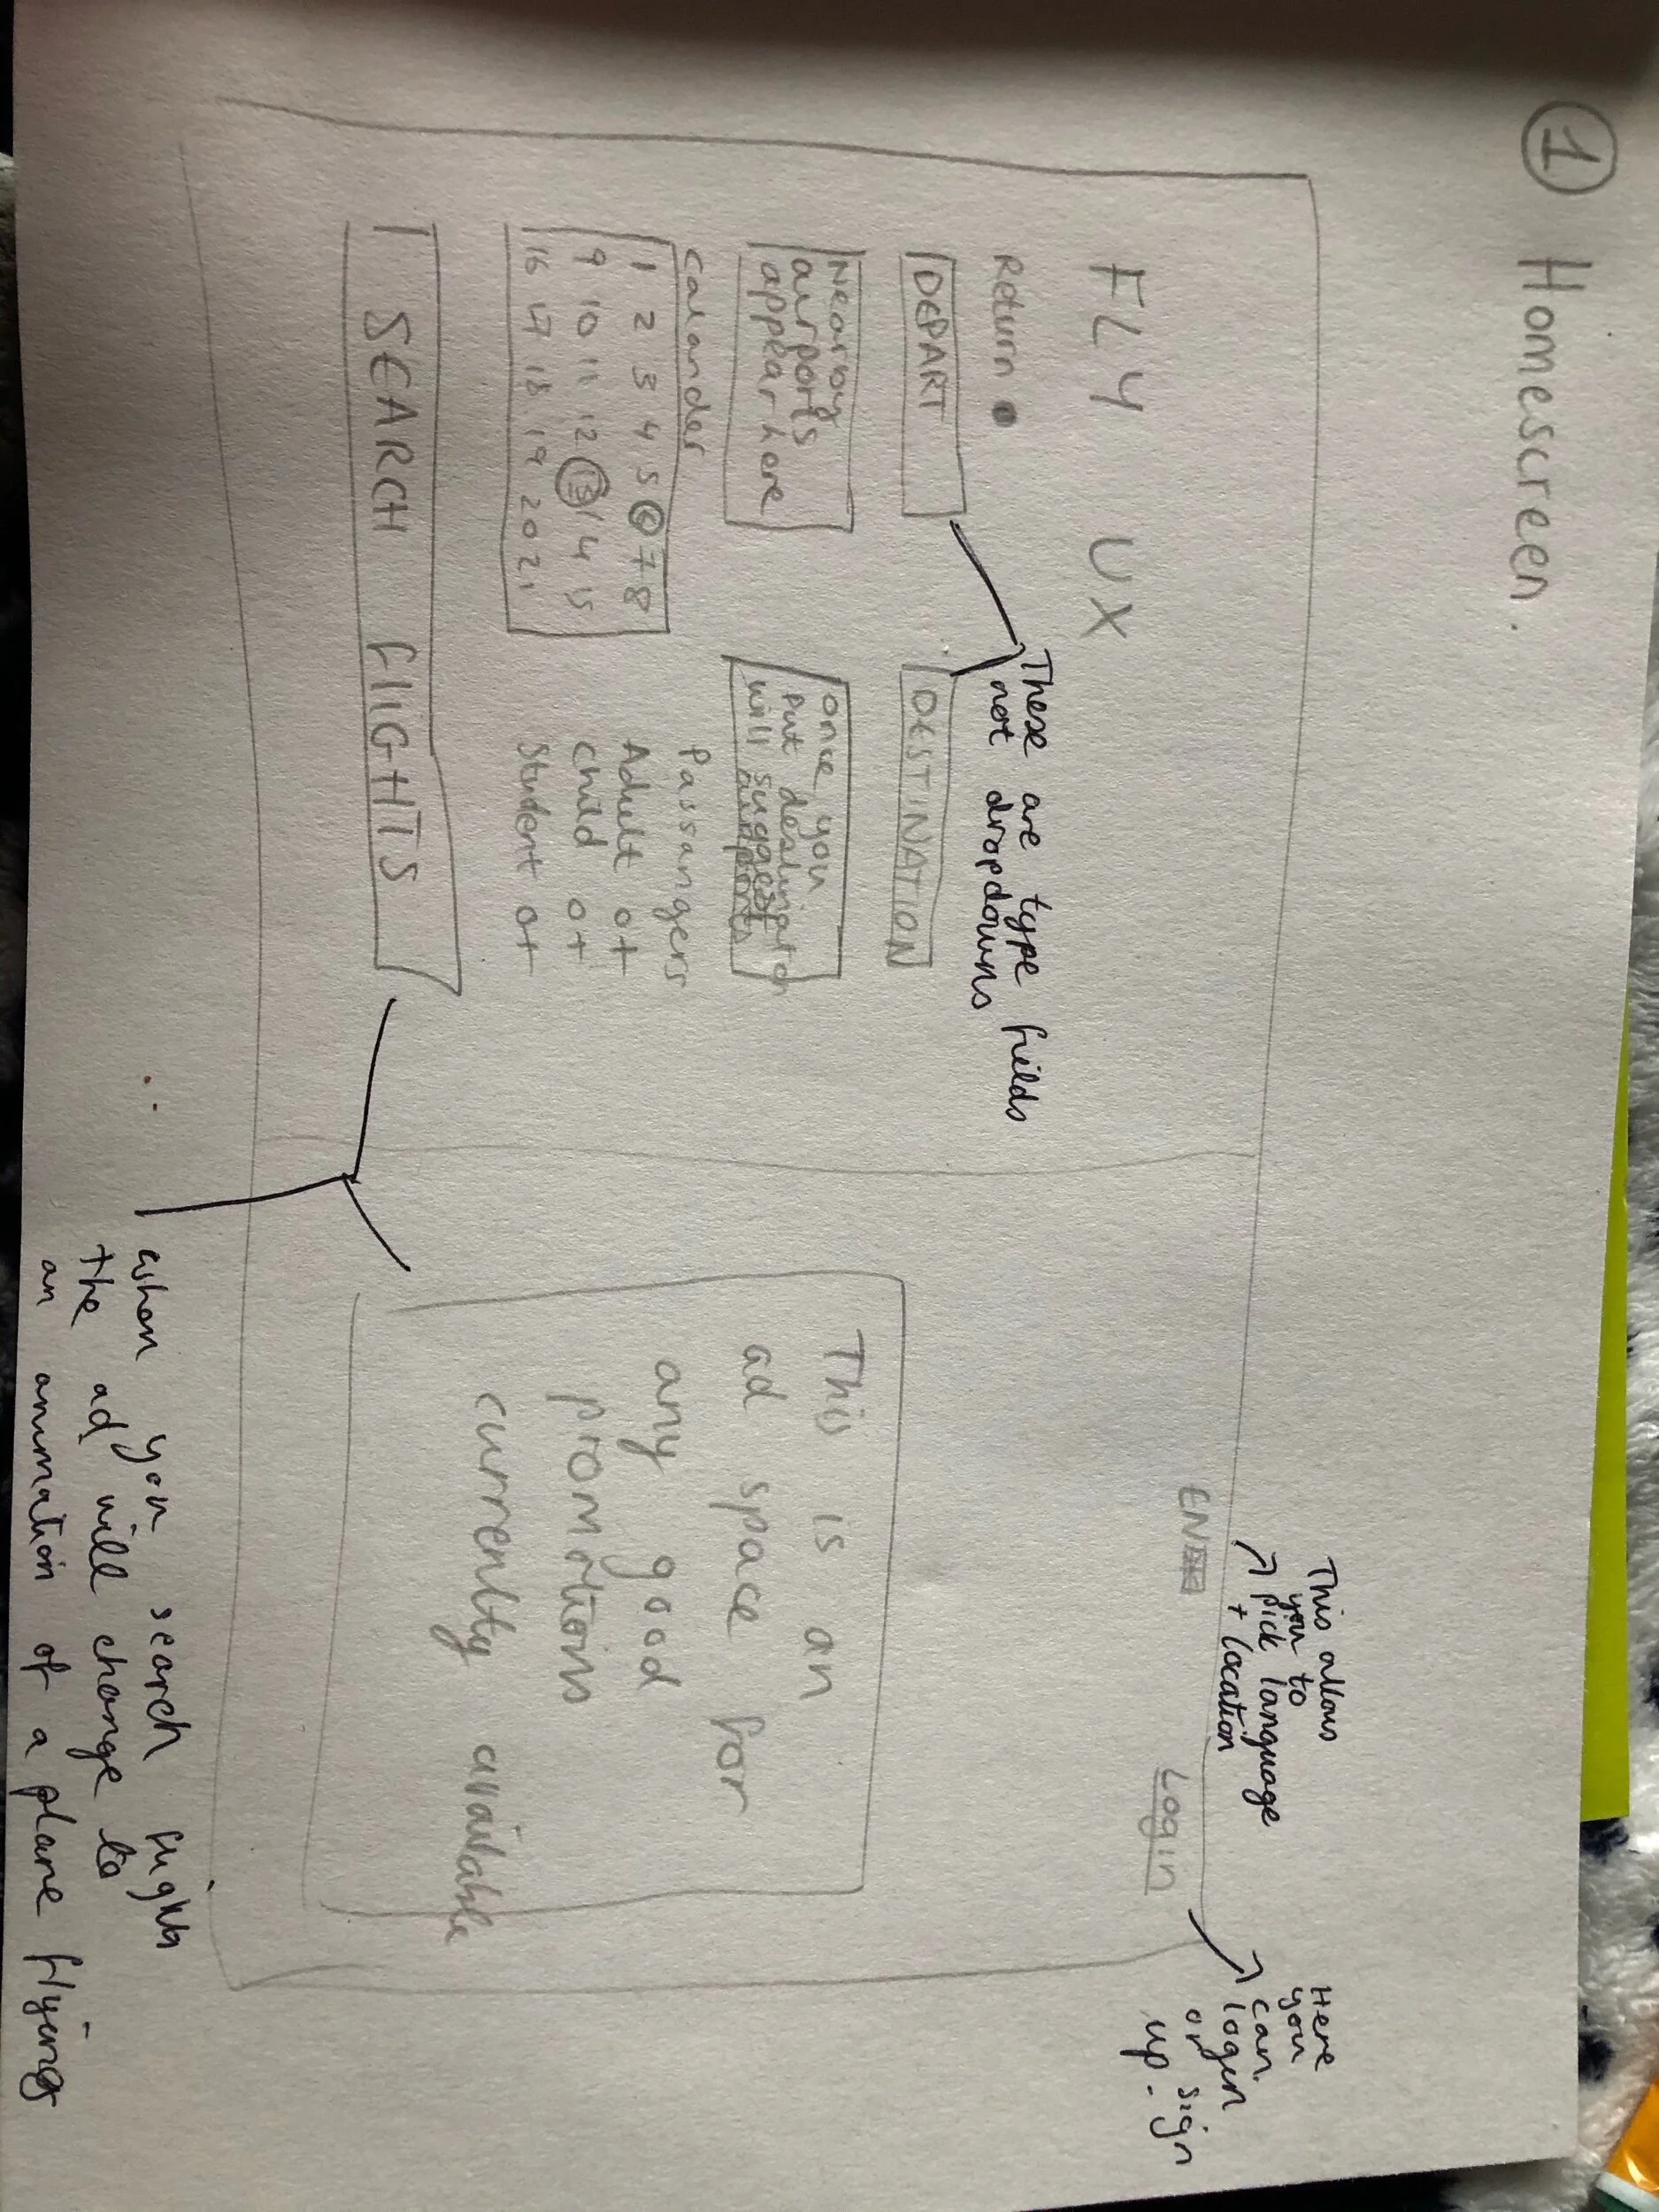 1 Homescreen.
This allows
you to
pick language
+ location
Here
you
can
login
or sign
up.
FLY UX
EN
Login
These are type fields
not dropdowns
Return
DEPART
DESTINATION
Nearby
airports
appear here
once you
put destination
will suggest
airports
This is an
ad space for
any good
promotions
currently available
Calander
1 2 3 4 5 6 7 8
9 10 11 12 13 14 15
16 17 18 19 20 21
Passangers
Adult 0+
Child 0+
Student 0+
SEARCH FLIGHTS
when you search flights
the ad will change to
an animation of a plane flying